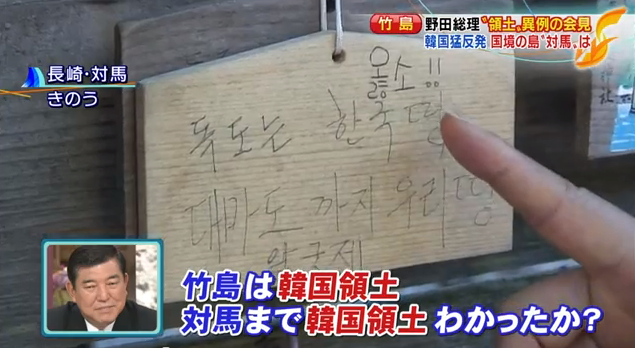 竹島 野田総理“領土”異例の会見
韓国猛反発 国境の島“対馬”は
長崎・対馬
きのう
옳소!!
독도는 한국땅
대마도 까지 우리땅
竹島は韓国領土
対馬まで韓国領土 わかったか?